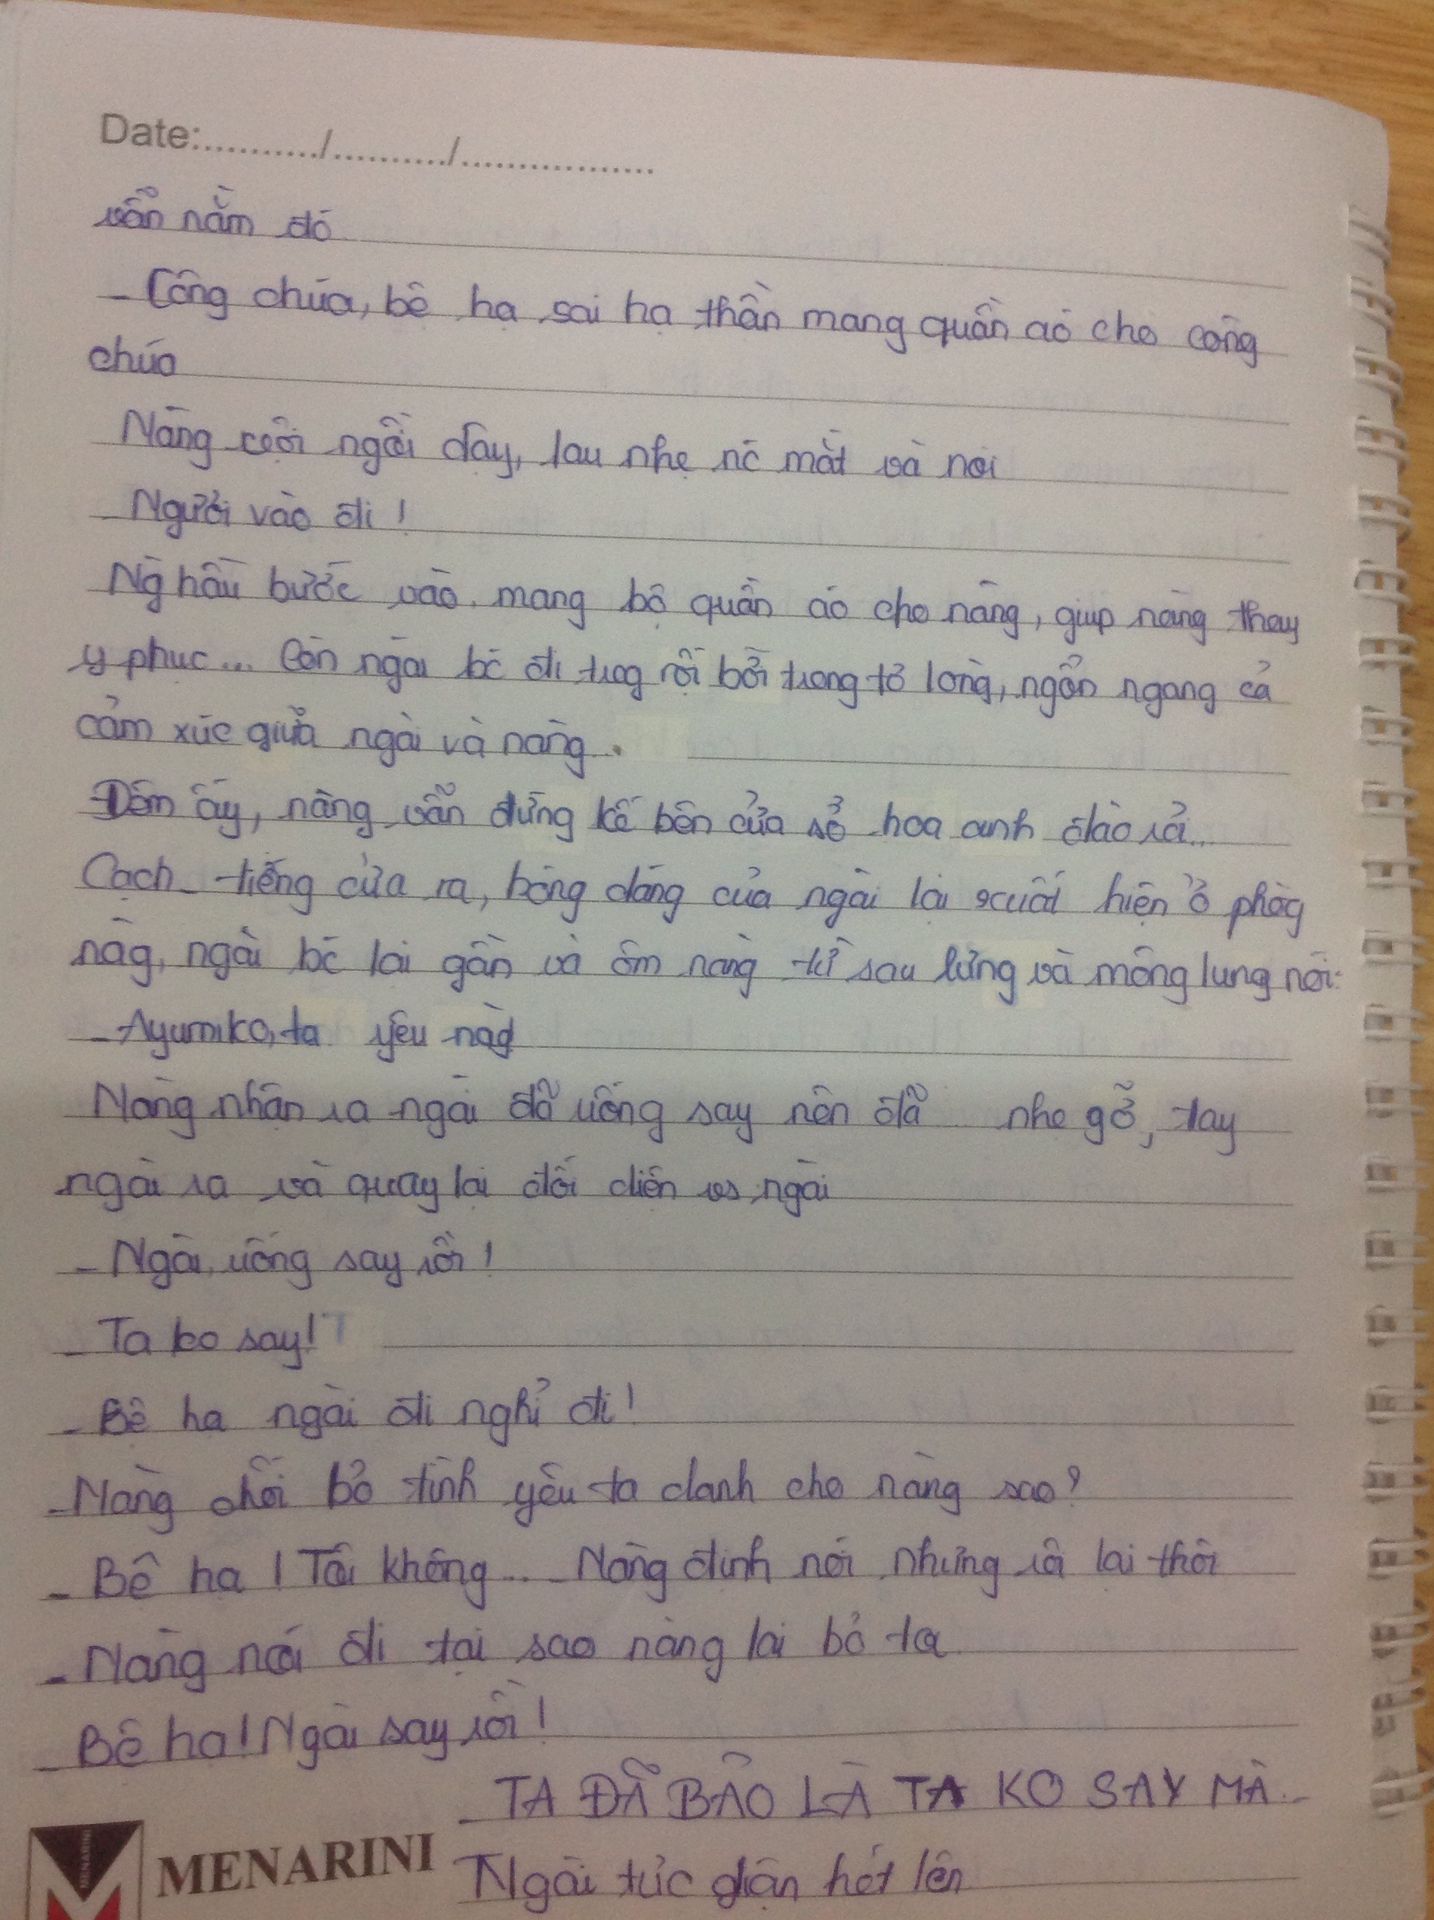 Date:........../........../................
vẫn nằm đó
- Công chúa, bệ hạ sai hạ thần mang quần áo cho công
chúa
Nàng cười ngồi dậy, lau nhẹ nc mắt và nói
- Người vào đi !
Ng hầu bước vào mang bộ quần áo cho nàng, giúp nàng thay
y phục... Còn ngài bc đi trog rối bời trong tơ lòng, ngổn ngang cả
cảm xúc giữa ngài và nàng.
Đêm ấy, nàng vẫn đứng kế bên cửa sổ hoa anh đào rả...
Cạch tiếng cửa ra, bóng dáng của ngài lại xuất hiện ở phòg
nàg, ngài bc lại gần và ôm nàng từ sau lưng và mông lung nói:
- Ayumiko, ta yêu nàg
Nàng nhận ra ngài đã uống say nên đã nhẹ gỡ, tay
ngài ra và quay lại đối diện vs ngài
- Ngài uống say rồi !
- Ta ko say!
- Bệ hạ ngài đi nghỉ đi !
- Nàng chối bỏ tình yêu ta dành cho nàng sao?
- Bệ hạ ! Tôi không... - Nàng định nói nhưng rồi lại thôi
- Nàng nói đi tại sao nàng lại bỏ ta
- Bệ hạ! Ngài say rồi !
- TA ĐÃ BẢO LÀ TA KO SAY MÀ -
Ngài tức giận hét lên
MENARINI